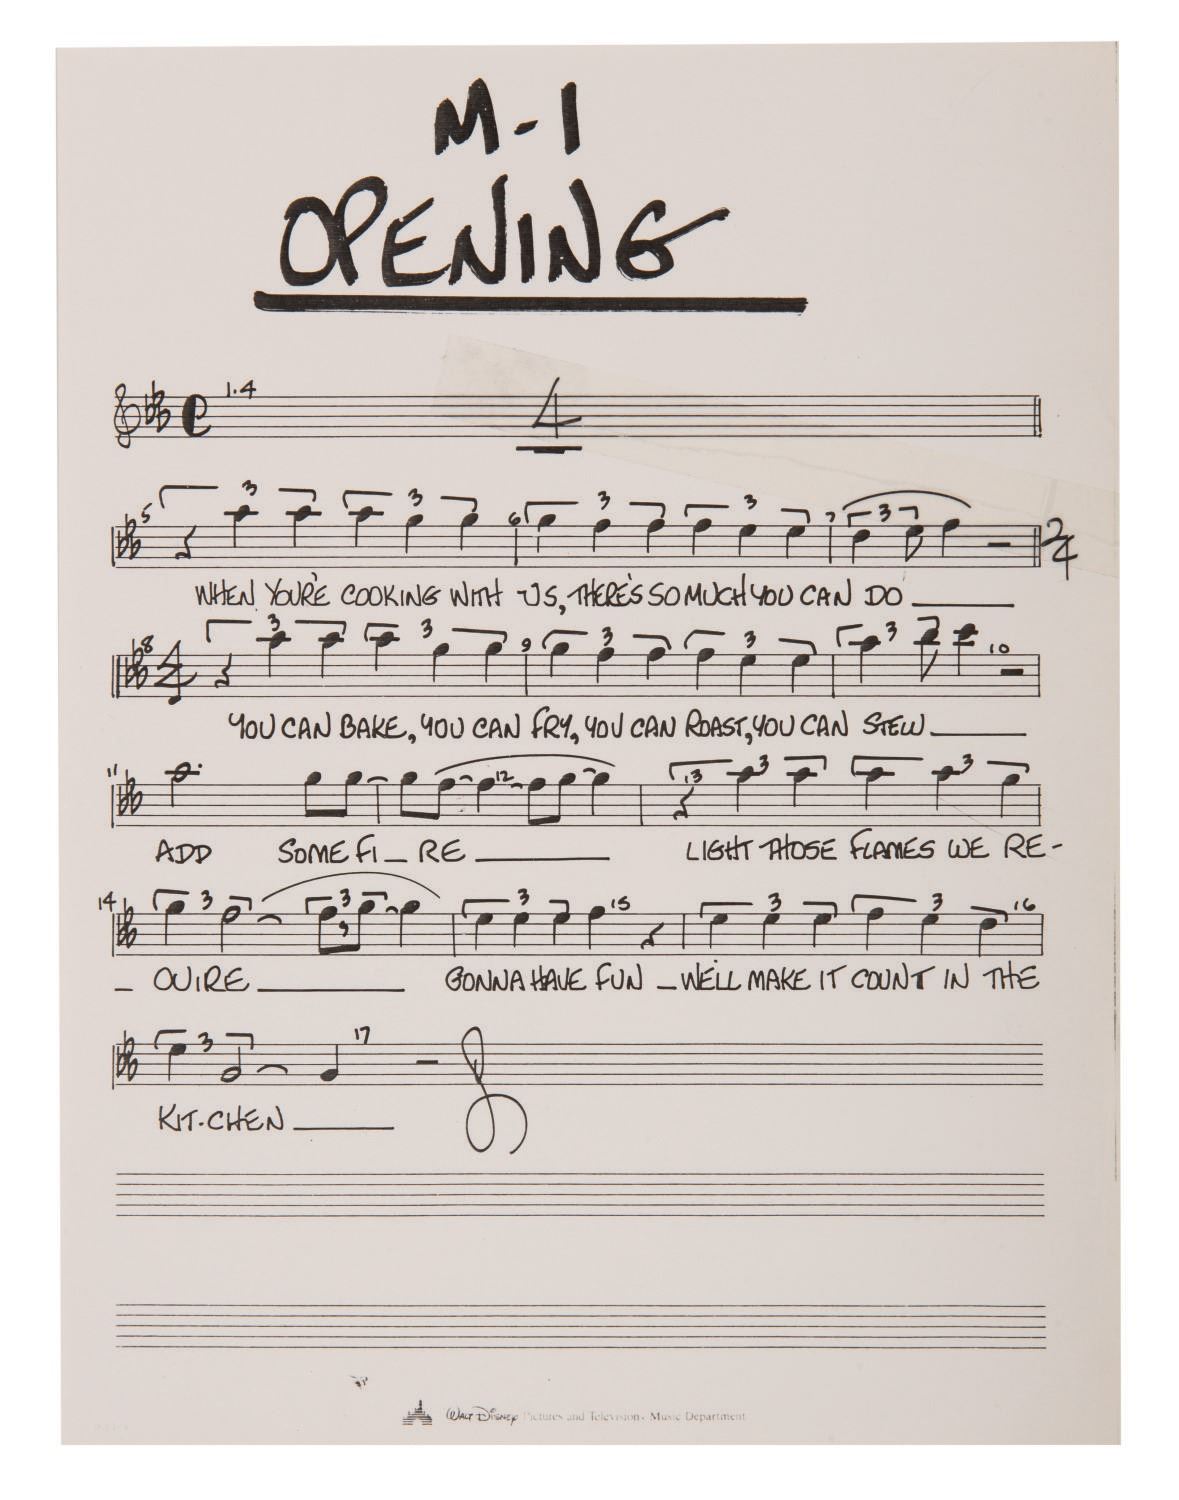 M-1
OPENING
1-4
4
5 3 3 6 3 3 7 3 2/4
WHEN YOU'RE COOKING WITH US, THERE'S SO MUCH YOU CAN DO ______
8 4 3 3 9 3 3 3 10
YOU CAN BAKE, YOU CAN FRY, YOU CAN ROAST, YOU CAN STEW ______
11 12 13 3 3
ADD SOME FI _ RE ______ LIGHT THOSE FLAMES WE RE-
14 3 3 3 15 3 3 16
_ QUIRE ______ GONNA HAVE FUN _ WE'LL MAKE IT COUNT IN THE
3 17
KIT-CHEN ______
Walt Disney Pictures and Television · Music Department